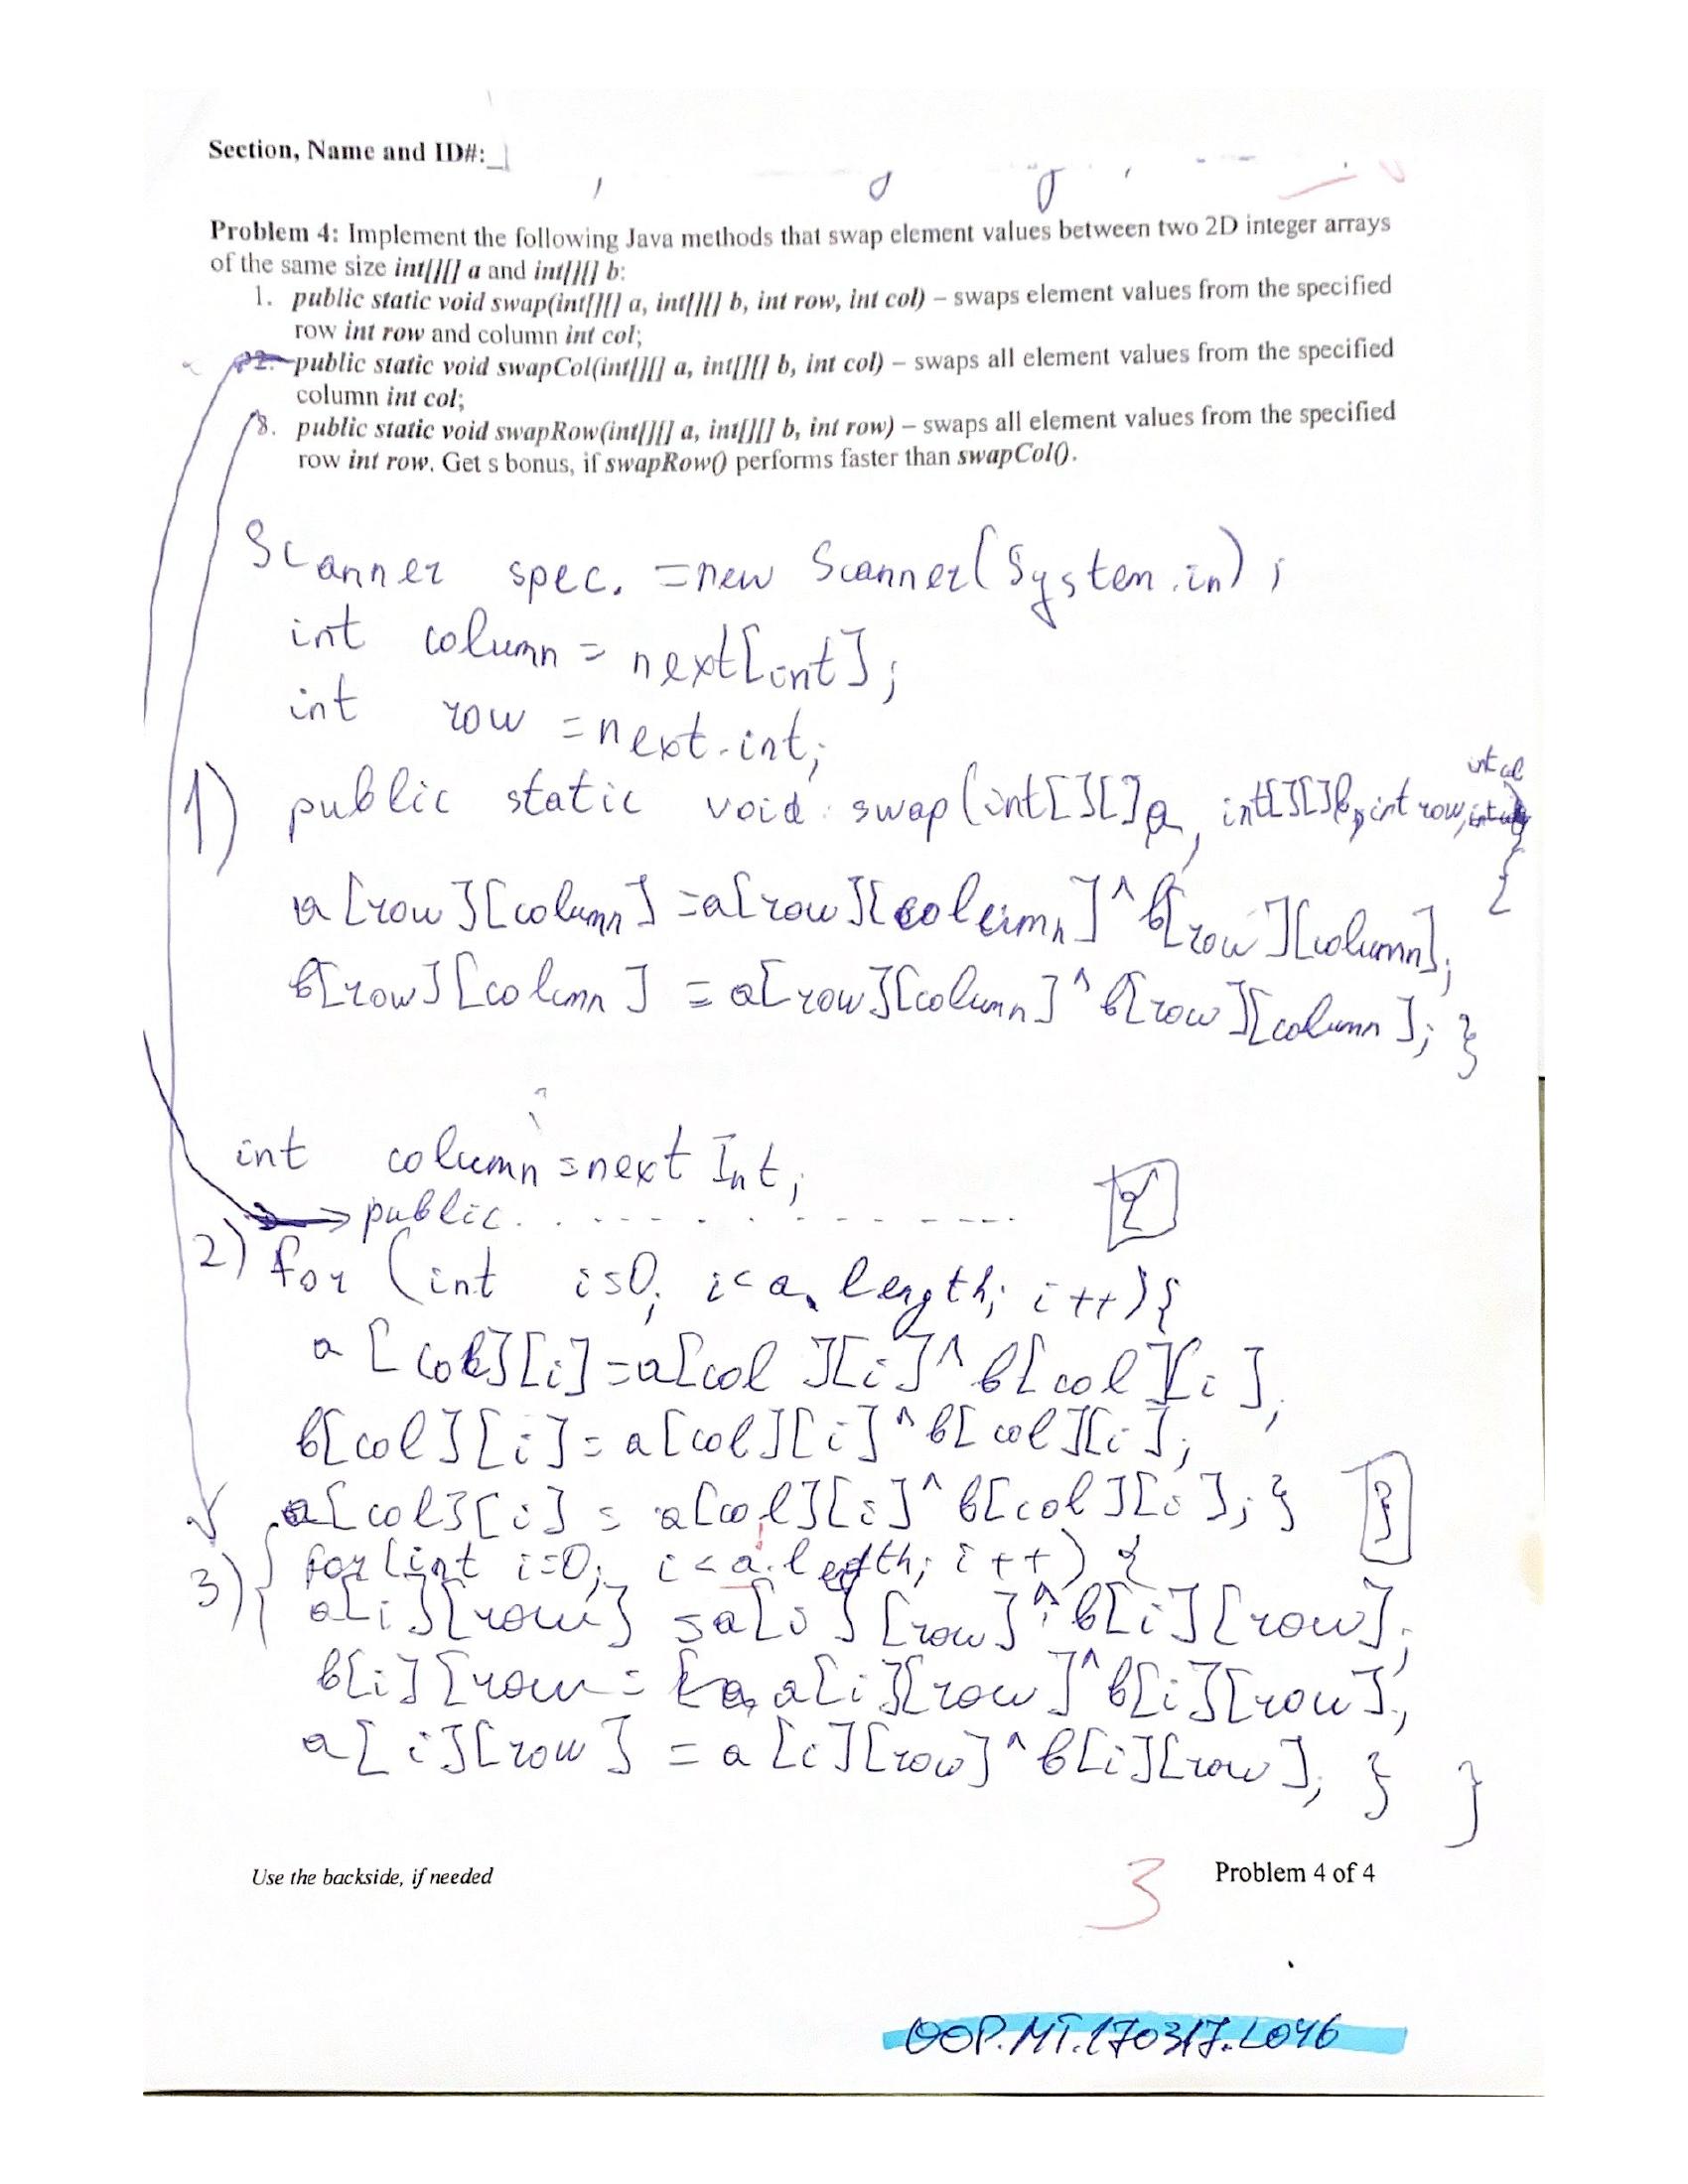 Section, Name and ID#:
Problem 4: Implement the following Java methods that swap element values between two 2D integer arrays
of the same size int[][] a and int[][] b:
1. public static void swap(int[][] a, int[][] b, int row, int col) – swaps element values from the specified
row int row and column int col;
2. public static void swapCol(int[][] a, int[][] b, int col) – swaps all element values from the specified
column int col;
3. public static void swapRow(int[][] a, int[][] b, int row) – swaps all element values from the specified
row int row. Get s bonus, if swapRow() performs faster than swapCol().
Scanner spec. = new Scanner(System.in);
int column = next[int];
int row = next.int;
int col
1) public static void swap(int[][]a, int[][]b, int row, {
a[row][column] = a[row][column]^b[row][column];
b[row][column] = a[row][column]^b[row][column]; }
int column = next Int;
public. . . . . . . . . . . 2
2) for (int i=0; i<a.length; i++){
a[col][i]=a[col][i]^b[col][i];
b[col][i]=a[col][i]^b[col][i];
a[col][i] = a[col][i]^b[col][i]; } 3
3) for(int i=0; i<a.length; i++) {
a[i][row] = a[i][row]^b[i][row];
b[i][row = a[i][row]^b[i][row];
a[i][row] = a[i][row]^b[i][row]; } }
Use the backside, if needed
3
Problem 4 of 4
OOP.MT.170317.L046